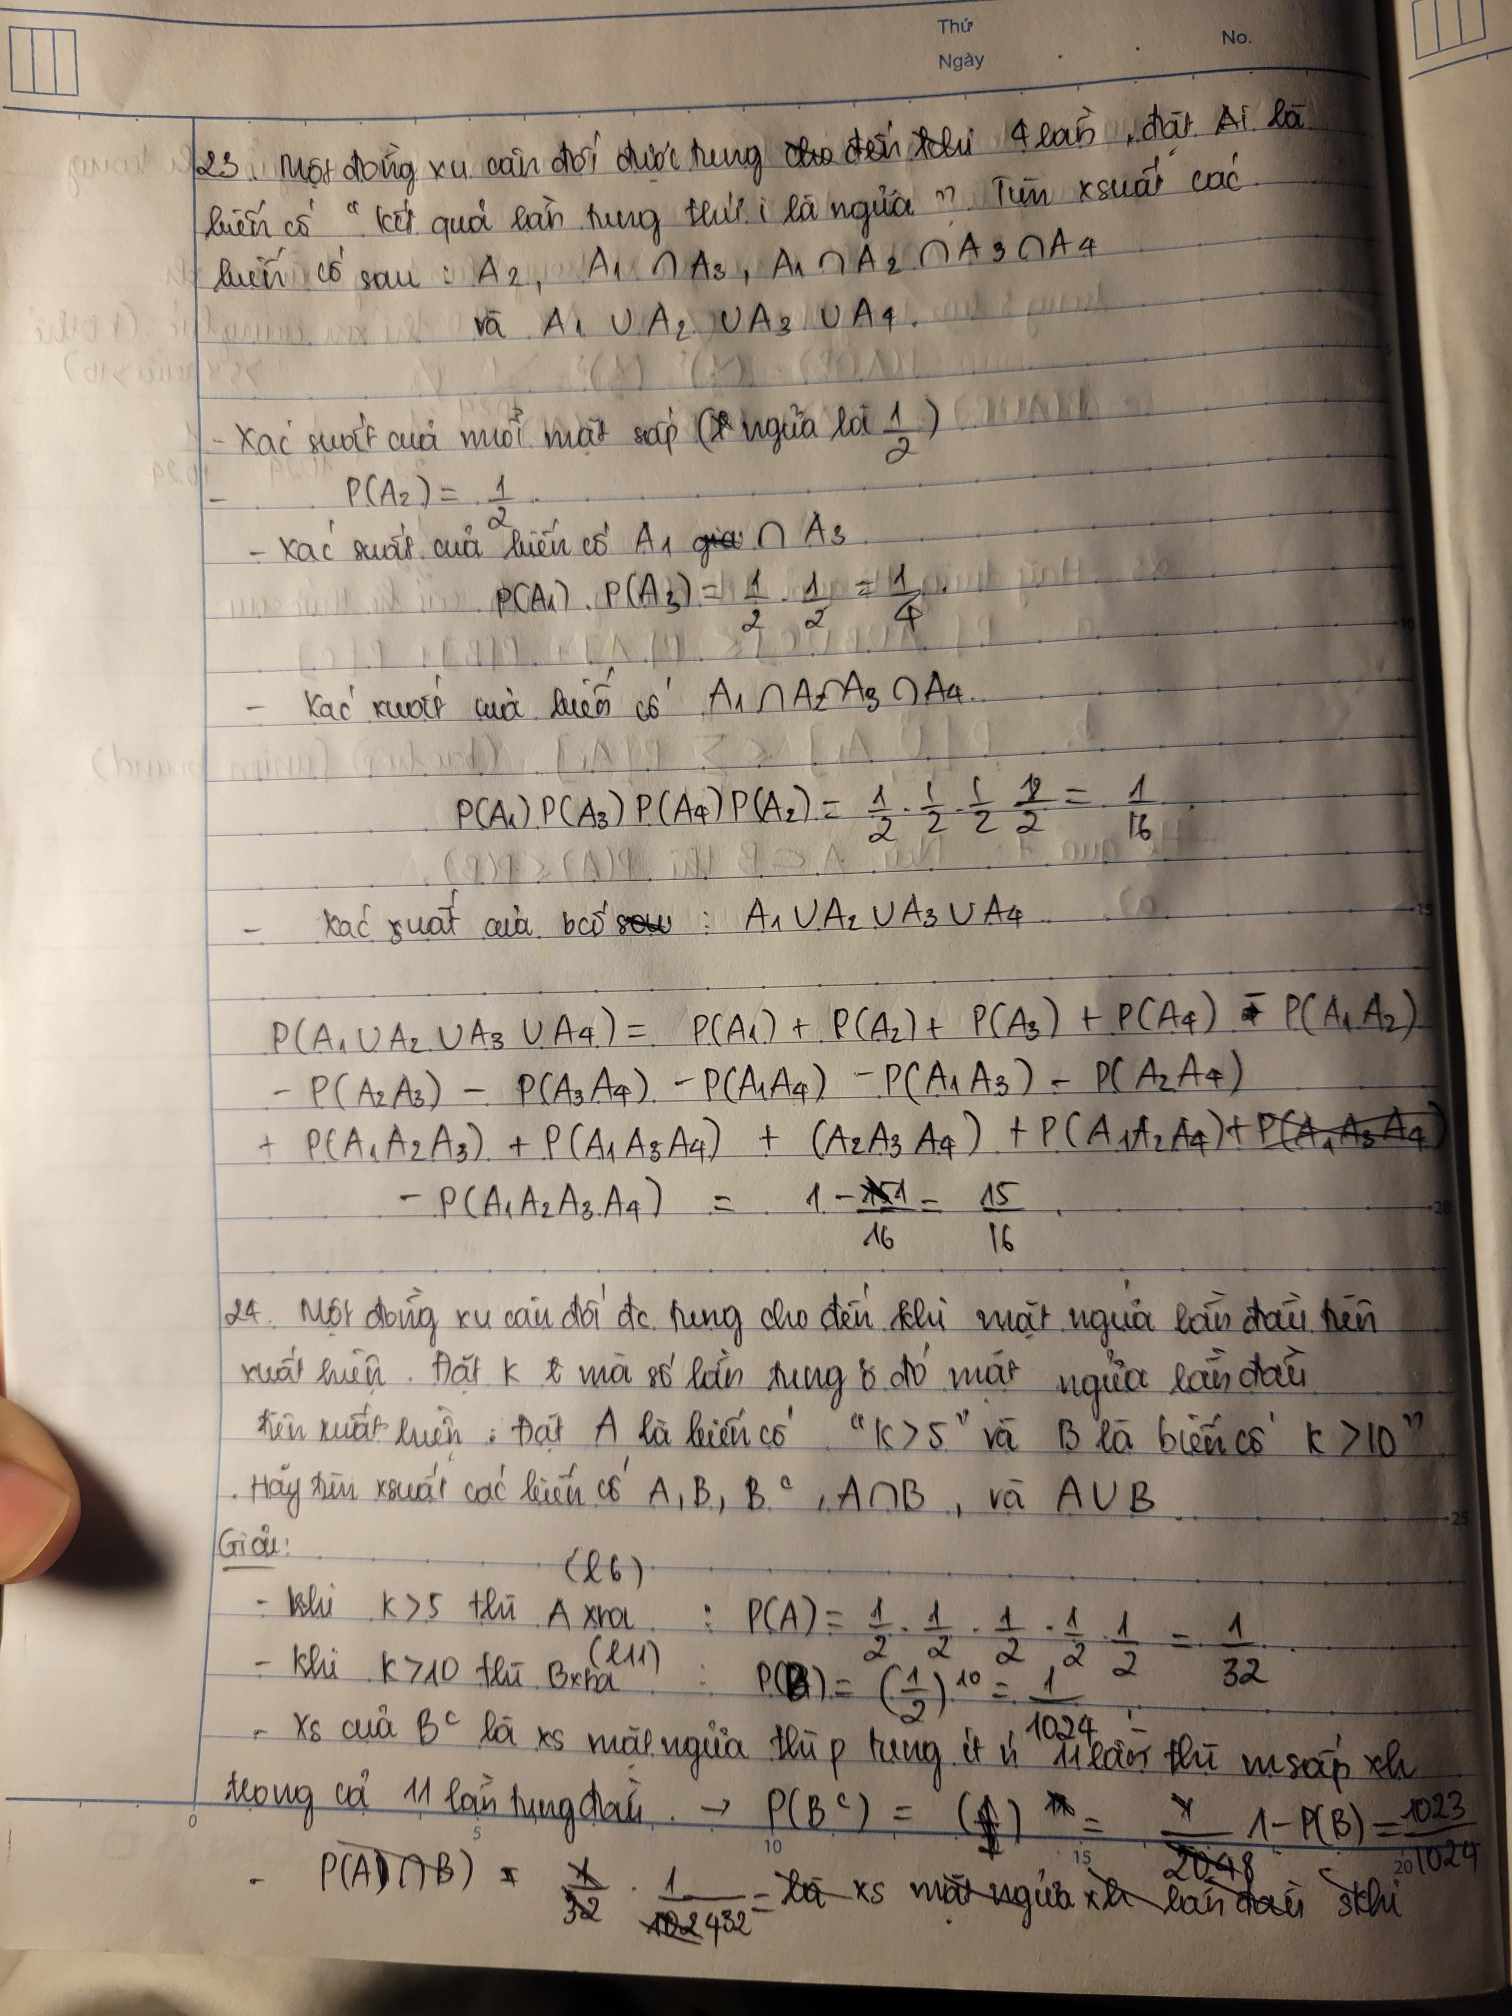 Thứ
Ngày
No.
23. Một đồng xu cân đối được tung cho đến khi 4 lần, đặt Ai là
biến cố "kết quả lần tung thứ i là ngửa". Tìm xsuất các
biến cố sau : A2, A1 ∩ A3, A1 ∩ A2 ∩ A3 ∩ A4
và A1 ∪ A2 ∪ A3 ∪ A4.
- Xác suất của mỗi mặt sấp (ngửa là 1/2)
- P(A2) = 1/2.
- Xác suất của biến cố A1 ∩ A3
P(A1). P(A3) = 1/2 . 1/2 = 1/4.
- Xác xuất của biến cố A1 ∩ A2 ∩ A3 ∩ A4
P(A1) P(A3) P(A4) P(A2) = 1/2 . 1/2 . 1/2 1/2 = 1/16.
- Xác xuất của bcố sau : A1 ∪ A2 ∪ A3 ∪ A4
P(A1 ∪ A2 ∪ A3 ∪ A4) = P(A1) + P(A2) + P(A3) + P(A4) - P(A1A2)
- P(A2A3) - P(A3A4) - P(A1A4) - P(A1A3) - P(A2A4)
+ P(A1A2A3) + P(A1A3A4) + (A2A3A4) + P(A1A2A4) + P(A1A3A4)
- P(A1A2A3A4) = 1 - 1/16 = 15/16.
24. Một đồng xu cân đối đc tung cho đến khi mặt ngửa lần đầu tiên
xuất hiện. Đặt K là mà số lần tung ở đó mặt ngửa lần đầu
tiên xuất hiện. Đặt A là biến cố "K > 5" và B là biến cố K > 10"
. Hãy tìm xsuất các biến cố A, B, Bᶜ, A∩B, và A∪B.
Giải:
(l6)
- khi K > 5 thì A xra : P(A) = 1/2 . 1/2 . 1/2 . 1/2 . 1/2 = 1/32.
(l11)
- khi K > 10 thì B xra : P(B) = (1/2)¹⁰ = 1/1024
- xs của Bᶜ là xs mặt ngửa thì p tung ít n 11 lần thì m sấp xh
trong cả 11 lần tung đầu. → P(Bᶜ) = 1 - P(B) = 1023/1024
- P(A ∩ B) = 1/32 . = là xs mặt ngửa xh lần đầu khi
0 5 10 15 20
10
15
20
25